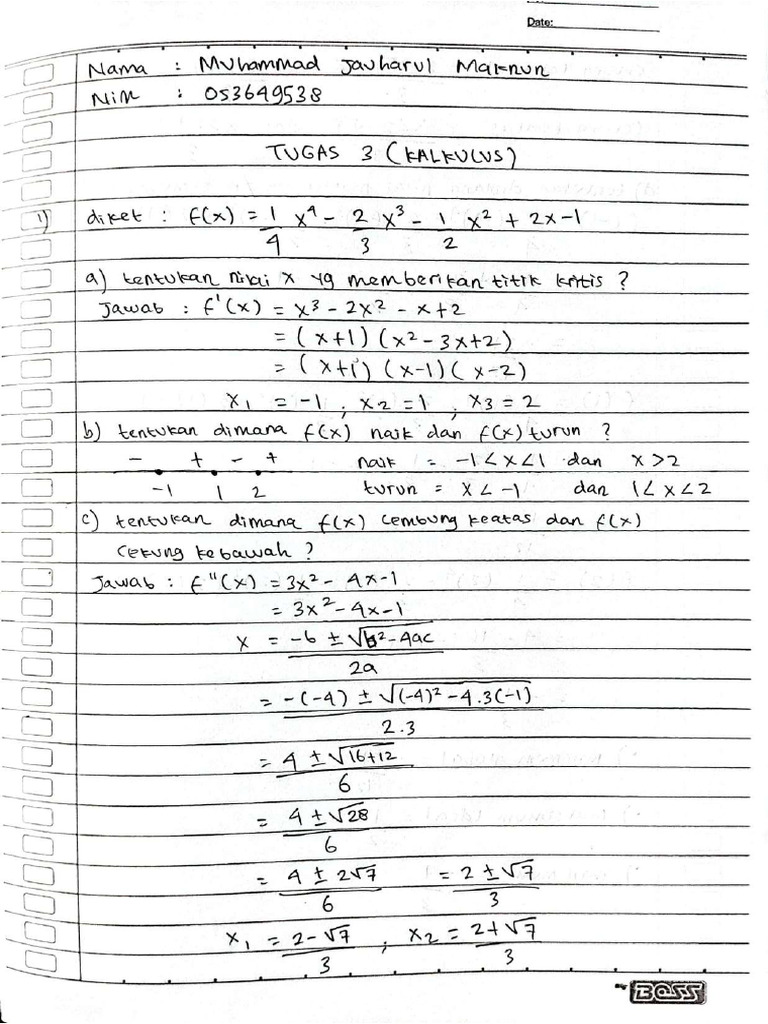 Date:
Nama : Muhammad Jauharul Maknun
Nim : 053649538
TUGAS 3 (KALKULUS)
1) diket : f(x) = 1/4 x⁴ - 2/3 x³ - 1/2 x² + 2x - 1
a) tentukan nilai x yg memberikan titik kritis ?
Jawab : f'(x) = x³ - 2x² - x + 2
= (x+1) (x² - 3x + 2)
= (x+1) (x-1) (x-2)
x₁ = -1 ; x₂ = 1 ; x₃ = 2
b) tentukan dimana f(x) naik dan f(x) turun ?
- + - + naik = -1 < x < 1 dan x > 2
-1 1 2 turun = x < -1 dan 1 < x < 2
c) tentukan dimana f(x) cembung keatas dan f(x)
cekung kebawah ?
Jawab : f"(x) = 3x² - 4x - 1
= 3x² - 4x - 1
x = (-b ± √(b² - 4ac)) / 2a
= (-(-4) ± √((-4)² - 4.3(-1))) / 2.3
= (4 ± √(16+12)) / 6
= (4 ± √28) / 6
= (4 ± 2√7) / 6 = (2 ± √7) / 3
x₁ = (2 - √7) / 3 , x₂ = (2 + √7) / 3
BOSS